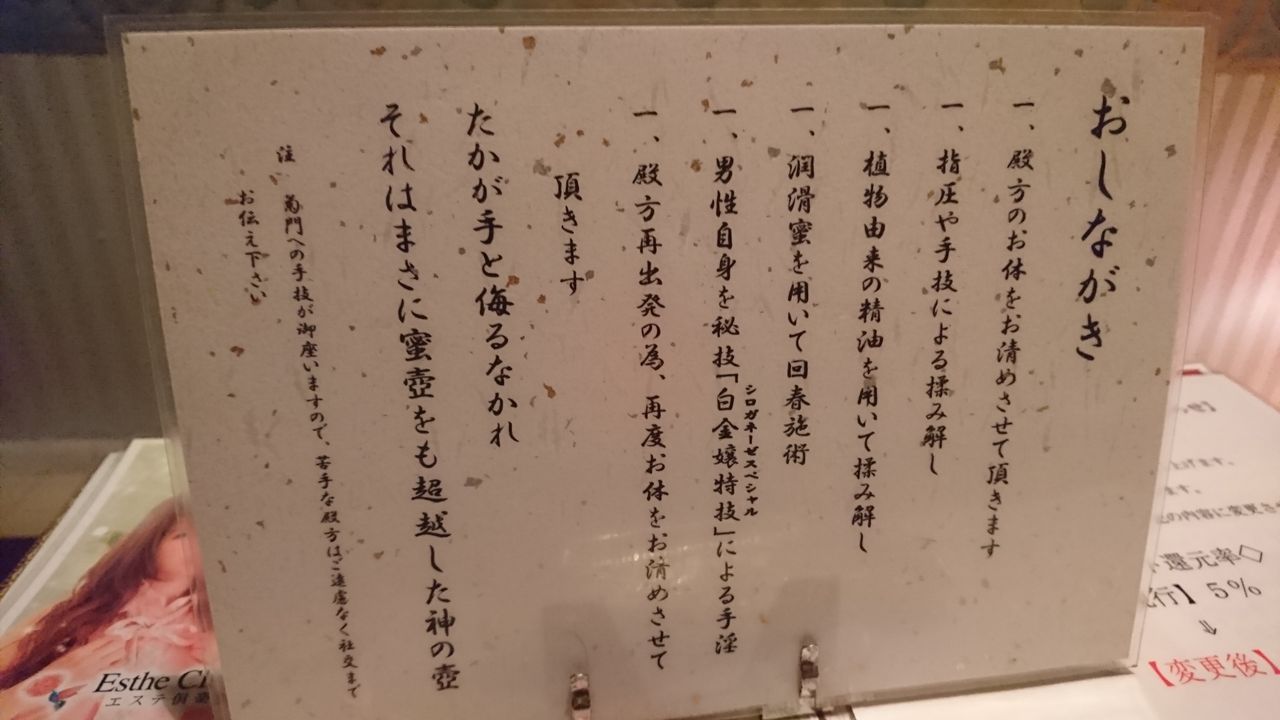 おしながき
一、殿方のお体をお清めさせて頂きます
一、指圧や手技による揉み解し
一、植物由来の精油を用いて揉み解し
一、潤滑蜜を用いて回春施術
シロガネーゼスペシャル
一、男性自身を秘技「白金嬢特技」による手淫
一、殿方再出発の為、再度お体をお清めさせて
頂きます
たかが手と侮るなかれ
それはまさに蜜壺をも超越した神の壺
注 菊門への手技が御座いますので、苦手な殿方はご遠慮なく社交まで
お伝え下さい
Esthe Cl
エステ倶楽
せ】
上げます。
ます。
の内容に変更さ
還元率◇
行】5%
⇓
【変更後】